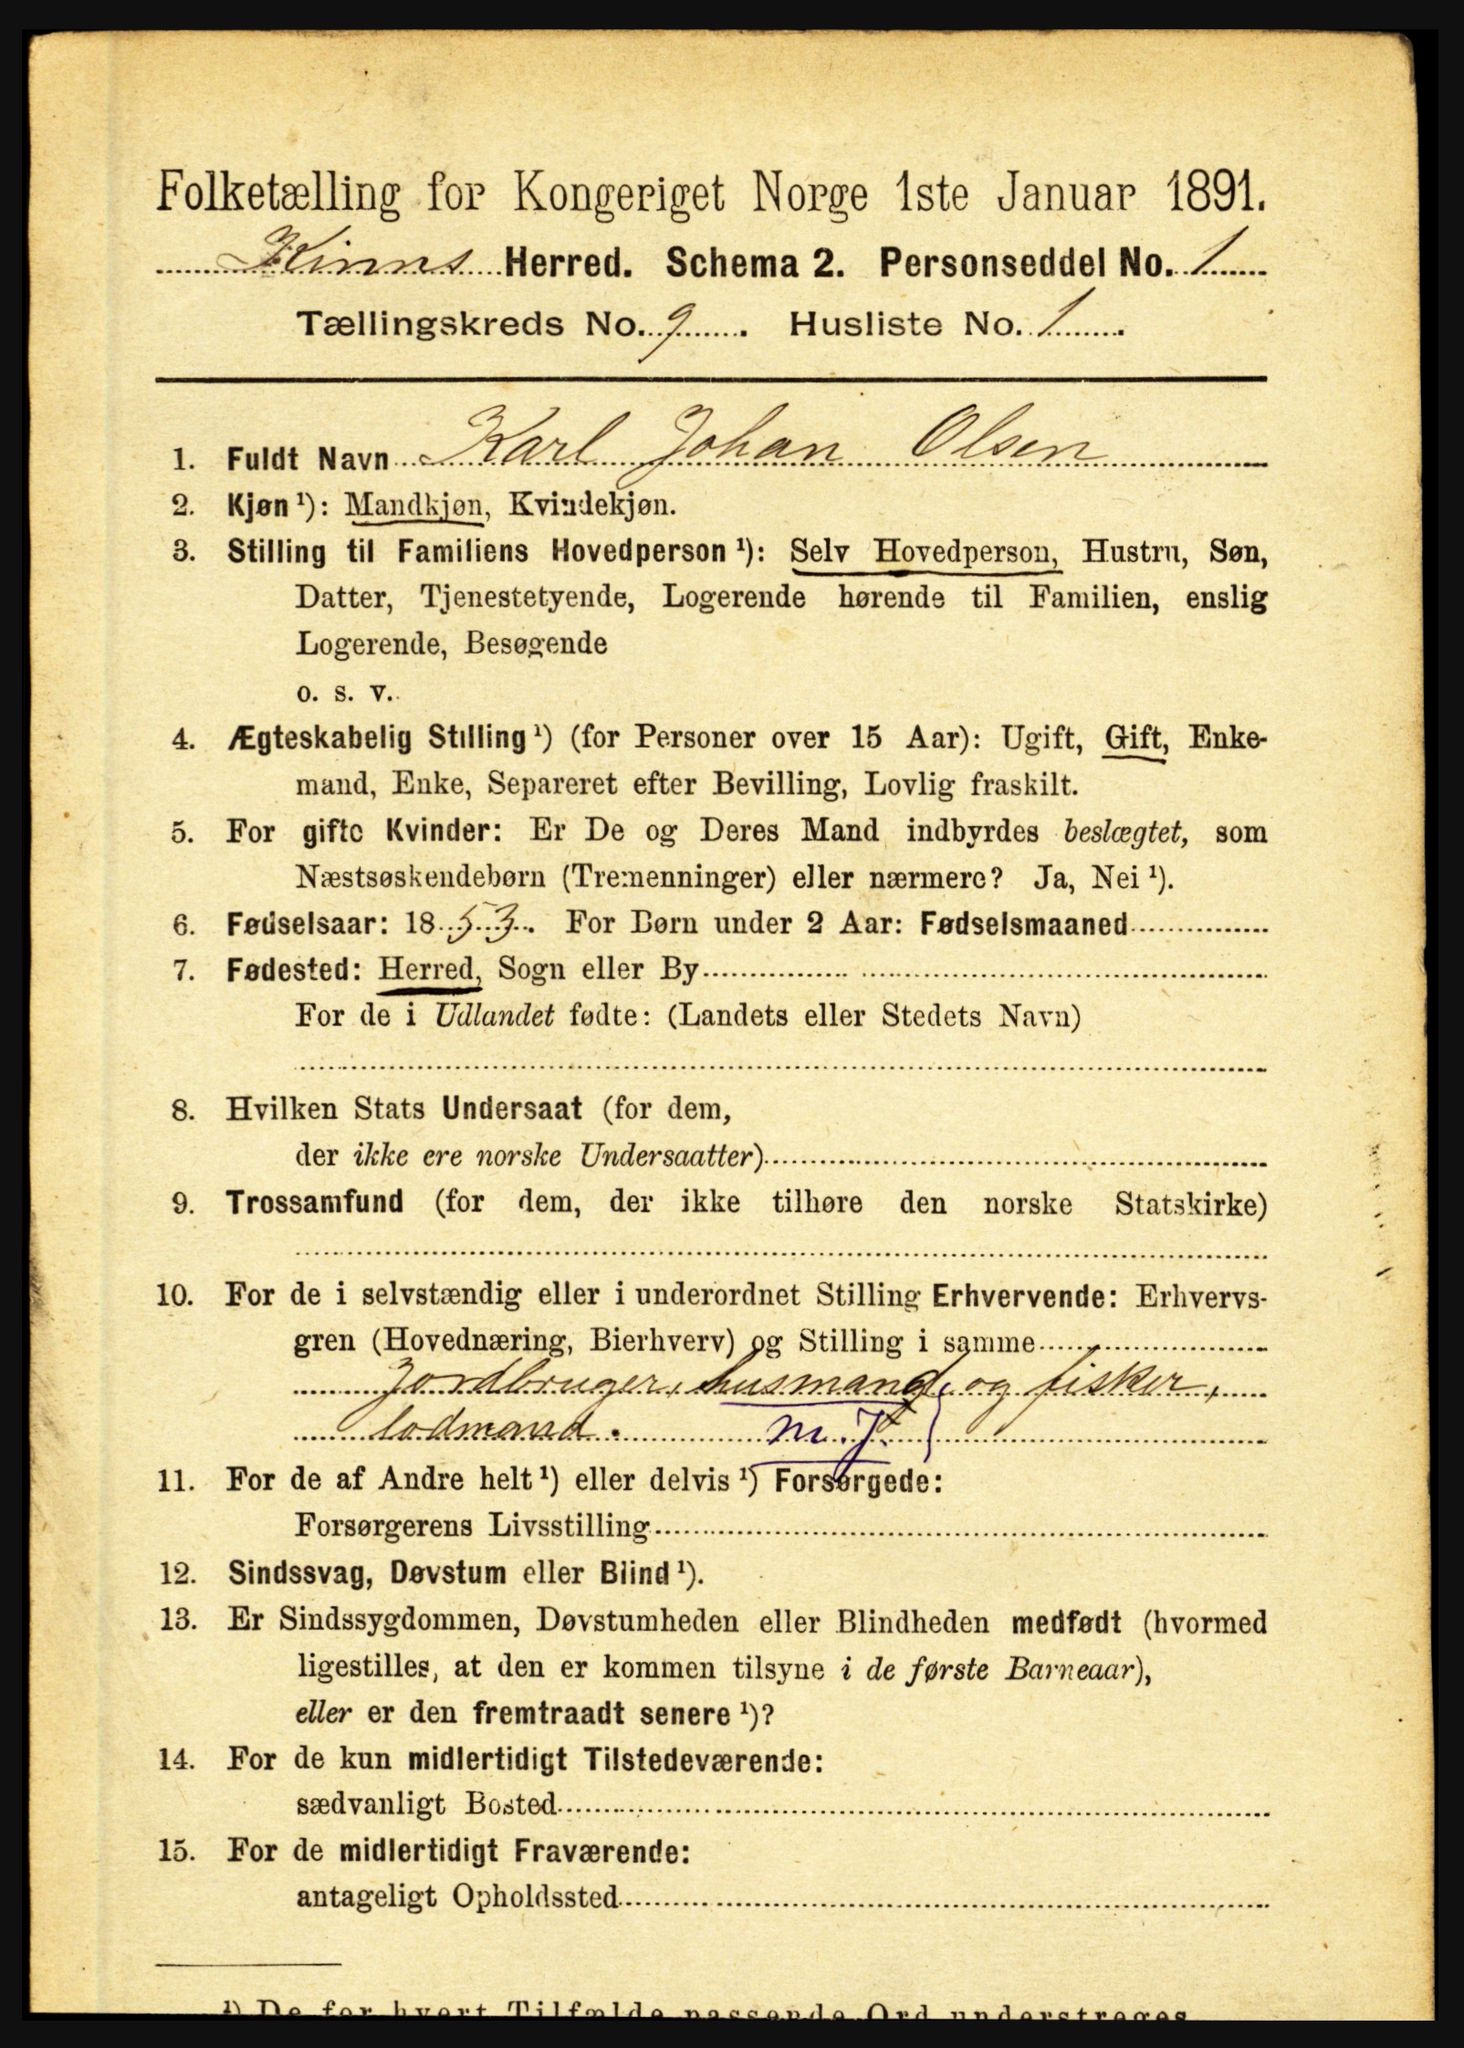 Folketælling for Kongeriget Norge 1ste Januar 1891.
Kinns Herred. Schema 2. Personseddel No. 1
Tællingskreds No. 9. Husliste No. 1.
1. Fuldt Navn Karl Johan Olsen
2. Kjøn¹): Mandkjøn, Kvindekjøn.
3. Stilling til Familiens Hovedperson¹): Selv Hovedperson, Hustru, Søn,
Datter, Tjenestetyende, Logerende hørende til Familien, enslig
Logerende, Besøgende
o. s. v.
4. Ægteskabelig Stilling¹) (for Personer over 15 Aar): Ugift, Gift, Enke-
mand, Enke, Separeret efter Bevilling, Lovlig fraskilt.
5. For gifte Kvinder: Er De og Deres Mand indbyrdes beslægtet, som
Næstsøskendebørn (Tremenninger) eller nærmere? Ja, Nei¹).
6. Fødselsaar: 1853. For Børn under 2 Aar: Fødselsmaaned
7. Fødested: Herred, Sogn eller By
For de i Udlandet fødte: (Landets eller Stedets Navn)
8. Hvilken Stats Undersaat (for dem,
der ikke ere norske Undersaatter)
9. Trossamfund (for dem, der ikke tilhøre den norske Statskirke)
10. For de i selvstændig eller i underordnet Stilling Erhvervende: Erhvervs-
gren (Hovednæring, Bierhverv) og Stilling i samme
Jordbruger, husmand, og fisker,
lodmand. m. J.
11. For de af Andre helt¹) eller delvis¹) Forsørgede:
Forsørgerens Livsstilling
12. Sindssvag, Døvstum eller Blind¹).
13. Er Sindssygdommen, Døvstumheden eller Blindheden medfødt (hvormed
ligestilles, at den er kommen tilsyne i de første Barneaar),
eller er den fremtraadt senere¹)?
14. For de kun midlertidigt Tilstedeværende:
sædvanligt Bosted
15. For de midlertidigt Fraværende:
antageligt Opholdssted
¹) De for hvert Tilfælde passende Ord understreges